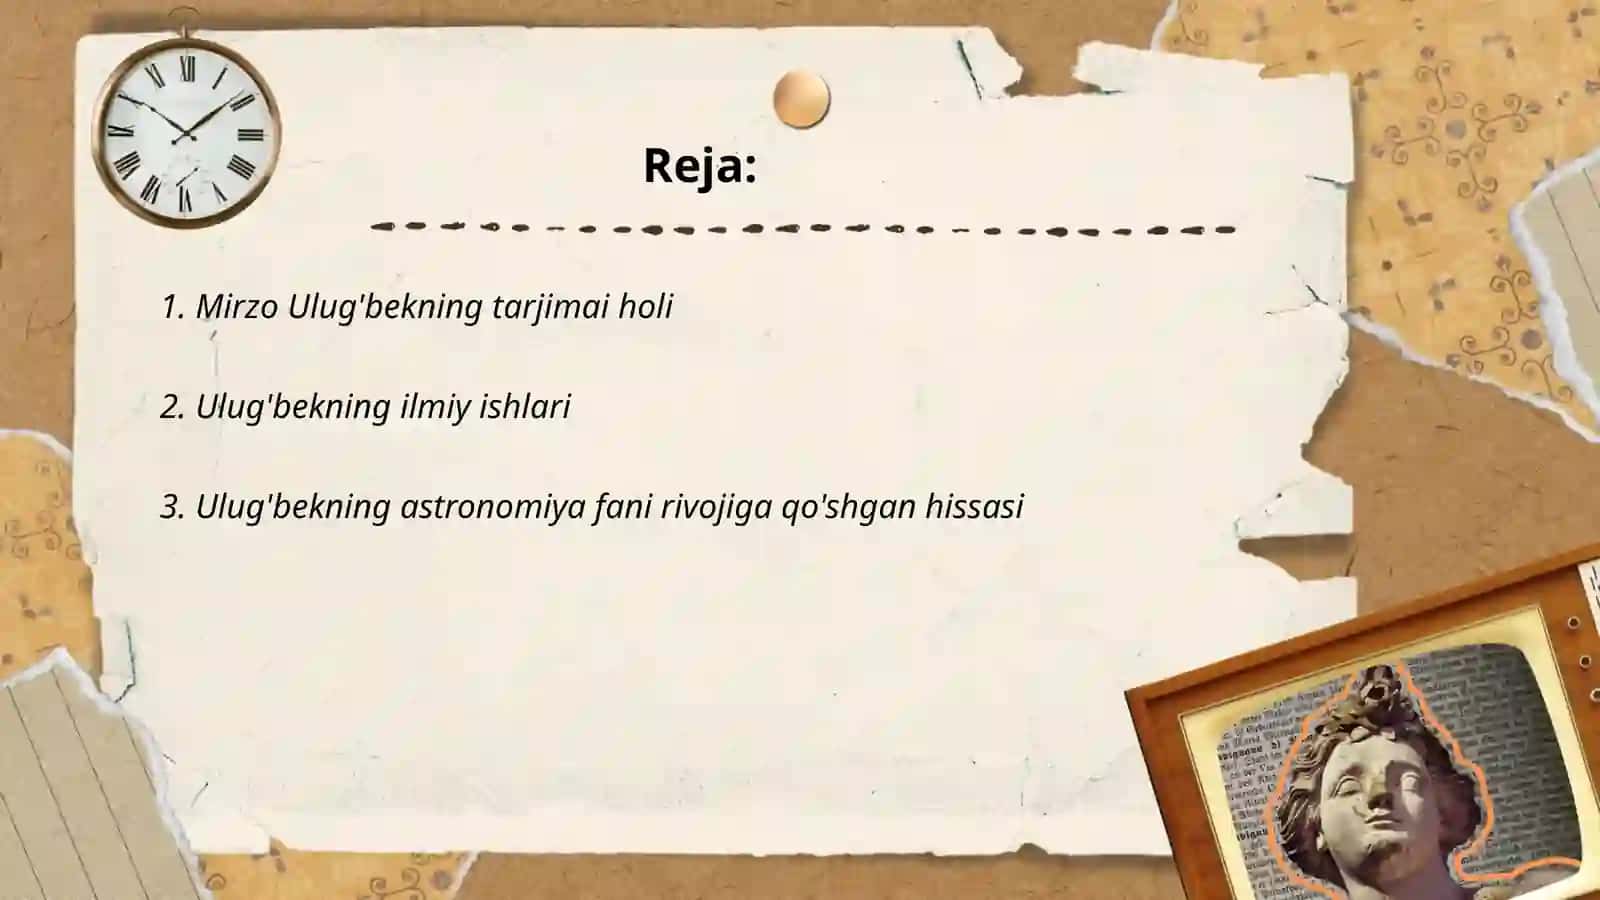 Reja:
1. Mirzo Ulug'bekning tarjimai holi
2. Ulug'bekning ilmiy ishlari
3. Ulug'bekning astronomiya fani rivojiga qo'shgan hissasi